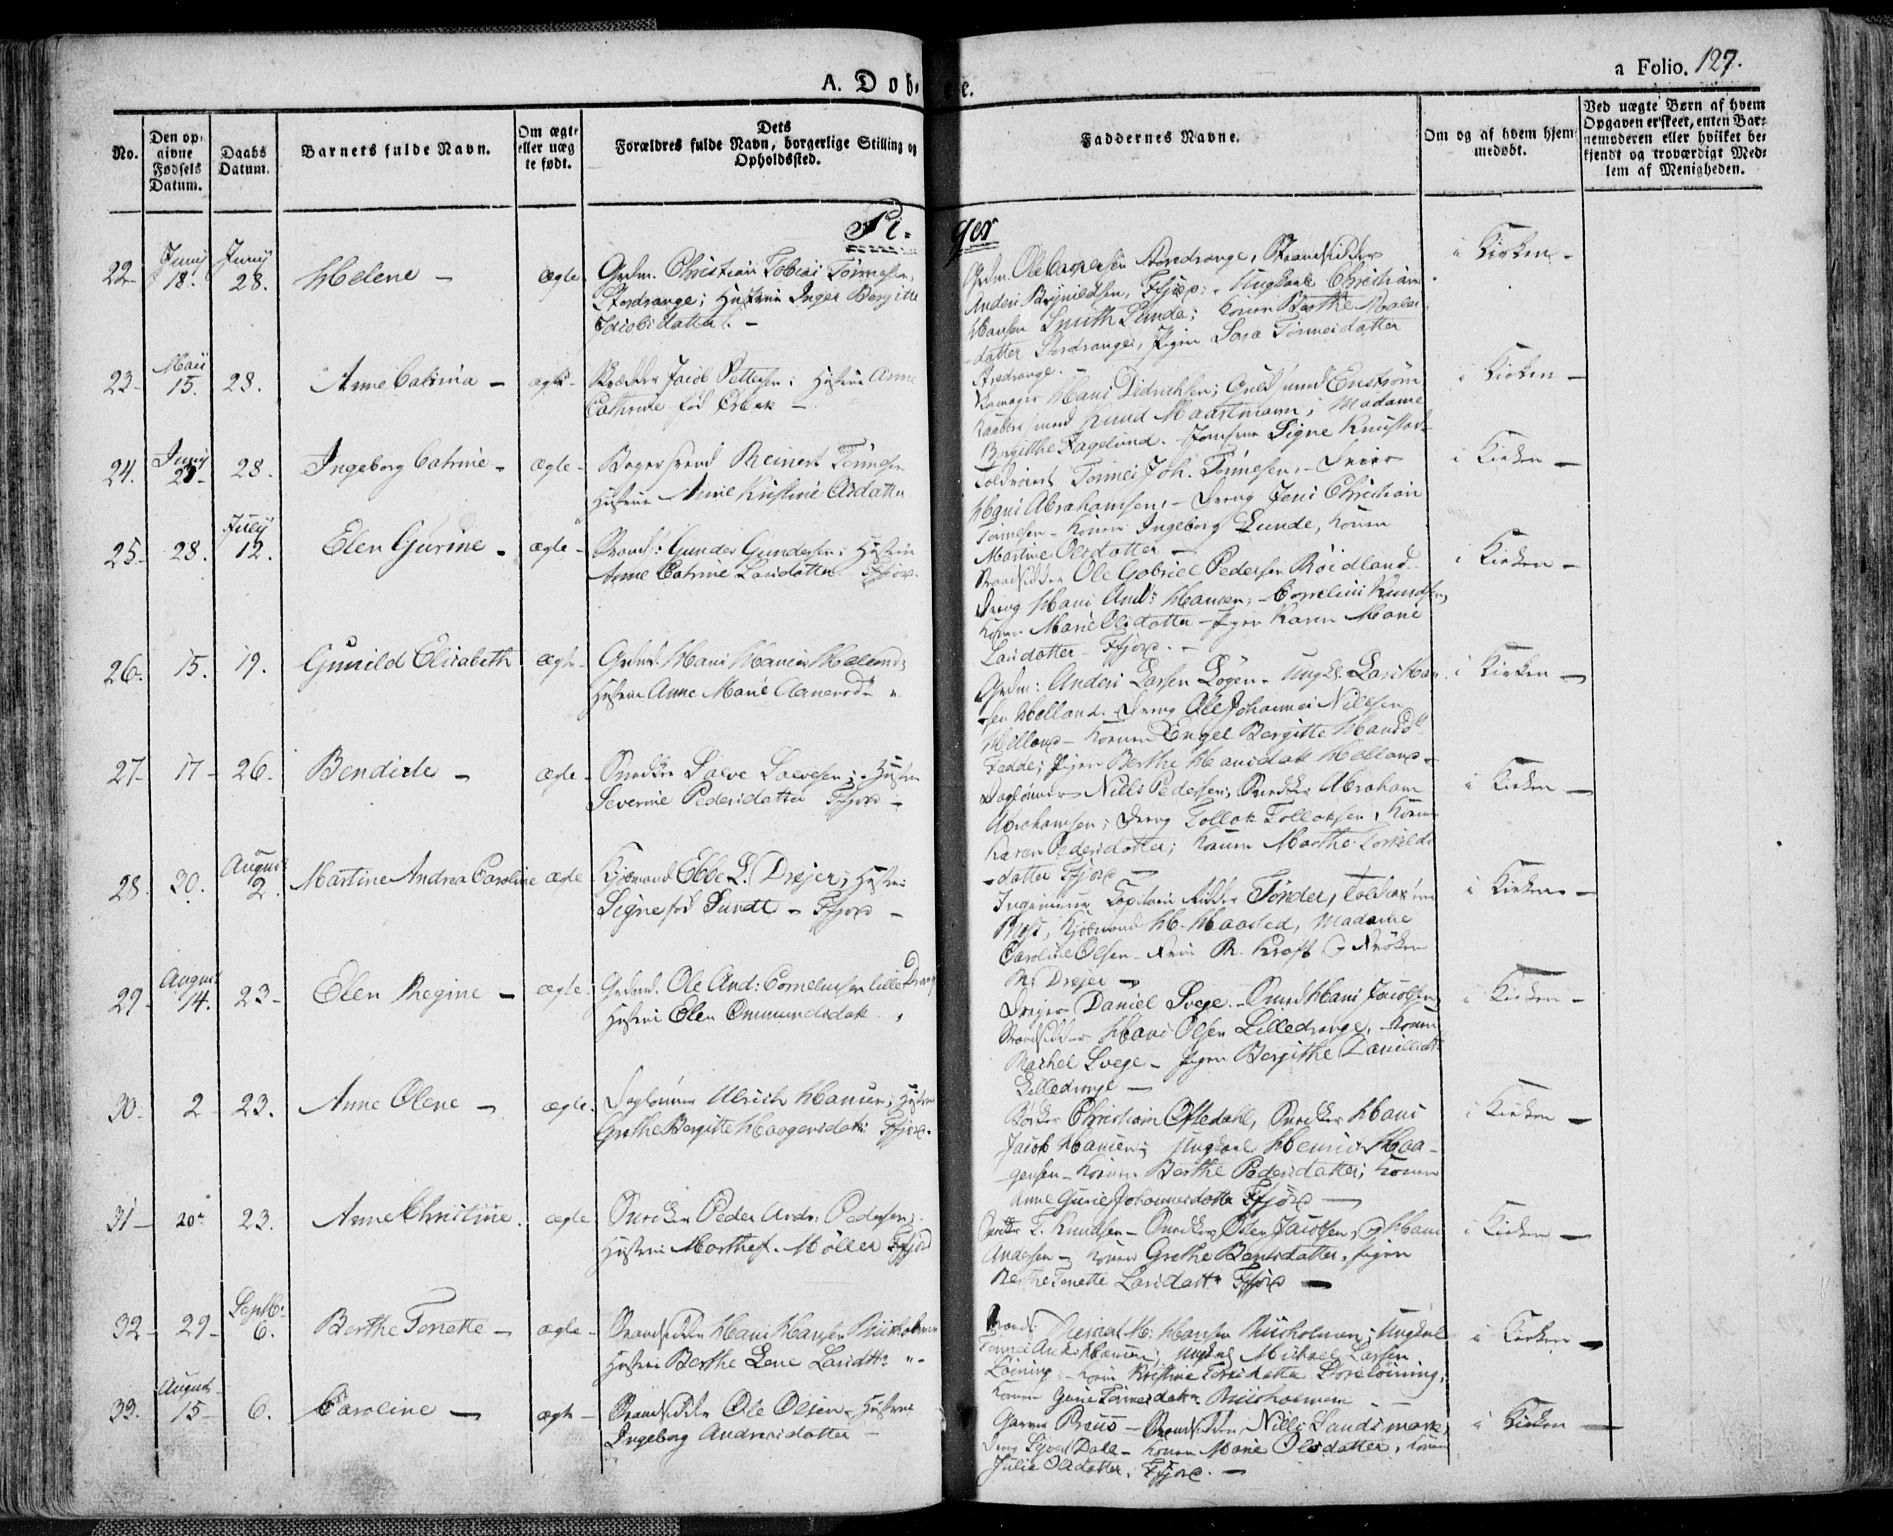 A. Døbte.
a Folio. 127.
No.
Den opgivne Fødsels Datum.
Daabs Datum.
Barnets fulde Navn.
Om ægte eller uægte født.
Dets Forældres fulde Navn, borgerlige Stilling og Opholdssted.
Faddernes Navne.
Om og af hvem hjemmedøbt.
Ved uægte Børn af hvem Opgaven er skeet, enten Barnemoderen eller hvilket bekjendt og troværdigt Medlem af Menigheden.
Piger
22 Junij 18. Junij 28. Helene – ægte Grdm. Christian Tobias Tønnesen,
Stordrange; Hustrue Inger Bergitte
Jacobsdatter. –
Stordrange, Strandsidder
Anders Brynildsen, Ffjord; Ungkarl Christian
Hansen Smith Lunde; Konen Berthe
datter Stordrange, Pigen Sara Tønnesdatter
Stordrange. –
i Kirken –
23 – Maii 15. 28. Anne Catrina – ægte – Jacob Pettersen; Hustrue Anne
Cathrine fød –
Hans Didrichsen; Guldsmed Enstrøm
Knud Maastmann; Madame
Bergitthe Fagelund. Jomfrue Signe Knudsd
i Kirken –
24. Junij 28. Ingeborg Catrine – ægte – Bagersvend Reinert Tønnesen
Hustrue Anne Kirstine
Tønnes Joh. Tønnesen, –
Hans Abrahamsen, – Dreng Jens Christian
Tønnesen – Konen Ingeborg Lunde, Konen
Martine Olsdatter –
i Kirken –
25 – 28. July 12. Elen Gurine – ægte – Strands: Gunder Gundersen; Hustrue
Anne Catrine Larsdatter Ffjord.
Strandsidder Ole Gabriel Pedersen Røidland
Dreng Hans And: Hansen, – Cornelius Knudsen,
Konen Marie Olsdatter – Pigen Karen Marie
Larsdatter – Ffjord. –
i Kirken –
26. 15. 19. Gunild Elisabeth ægte – Grdmd. Hans Hansen Helland;
Hustrue Anne Marie
Grdm: Anders Larsen Løgen – Ungk. Lars Han
sen Helland. Dreng Ole Johannes Nillesen
Helland – Konen Engel Bergitte Hansd
Fedde; Pigen Berthe Hansdatt Helland –
i Kirken –
27 – 17 – 26. Bendicte – ægte – Snedker Salve Salvesen; – Hustrue
Severine Pedersdatter Ffjord –
Dagløner Nills Pedersen; Snedker Abraham
Abrahamsen; Dreng Tollak Tollaksen, Konen
Karen Pedersdatter; Konen Marthe Torkilds
datter Ffjord –
i Kirken –
28 20. August 2. Martine Andrea Caroline ægte Kjøbmand Ebbe L. Drejer; Hustrue
Signe fød Sundt – Ffjord –
Ingenieur Capitain Ridder Tønder,
Kjøbmand H. Haasted, Madame
Caroline Olsen – Frue R. Kraft & Frøken
Drejer –
i Kirken –
29 – August 14. 23 – Elen Regine – ægte – Grdmd. Ole And: Corneliusen Lilledrange
Hustrue Elen Ommundsdatt.
Daniel Svege. – Smed Hans Jacobsen
Strandsidder Hans Olsen Lilledrange, – Konen
Rachel Svege – Pigen Bergithe Danielsdt
Lilledrange –
i Kirken –
30 – 2 – 23. Anne Olene – ægte. Dagløner Ulrich Hansen; Hustrue
Grethe Bergitte Haagensdatt: Ffjord.
Bødker Christian Oftedahl, Snedker Hans
Jacob Hansen; Ungkarl Henrich Haa-
gensen – Konen Berthe Pedersdatter; Konen
Anne Gurie Johannesdatter Ffjord –
i Kirken –
31 – 20 – 23. Anne Christine. ægte Snedker Peder Andr: Pedersen;
Hustrue Marthe f. Møller Ffjord
T. Knudsen – Snedker Osten Jacobsen, og Hans
Andersen – Konen Grethe Berntsdatter, Pigen
Berthe Tonette Larsdatt. Ffjord –
i Kirken –
32 – 29 – Septbr. 6. Berthe Tonette – ægte – Strandsidder Hans Hansen Riisholmen
Hustrue Berthe Lene Larsdtt:
H: Hansen Riisholmen; Ungkarl
Tønnes And: Hansen; Ungkarl Michael Larsen
Løining – Konen Kirstine Løining,
Konen Gurie Tønnesdatt. Riisholmen –
i Kirken –
33. August 15 – 6. Caroline – ægte – Strandsidder Ole Olsen – Hustrue
Ingeborg Andreasdatter –
Garver Preus – Strandsidder Nills Landsmark,
Dreng Syvert Dall – Konen Marie Olsdatter, Konen
Julie Olsdatter, Ffjord. –
i Kirken –